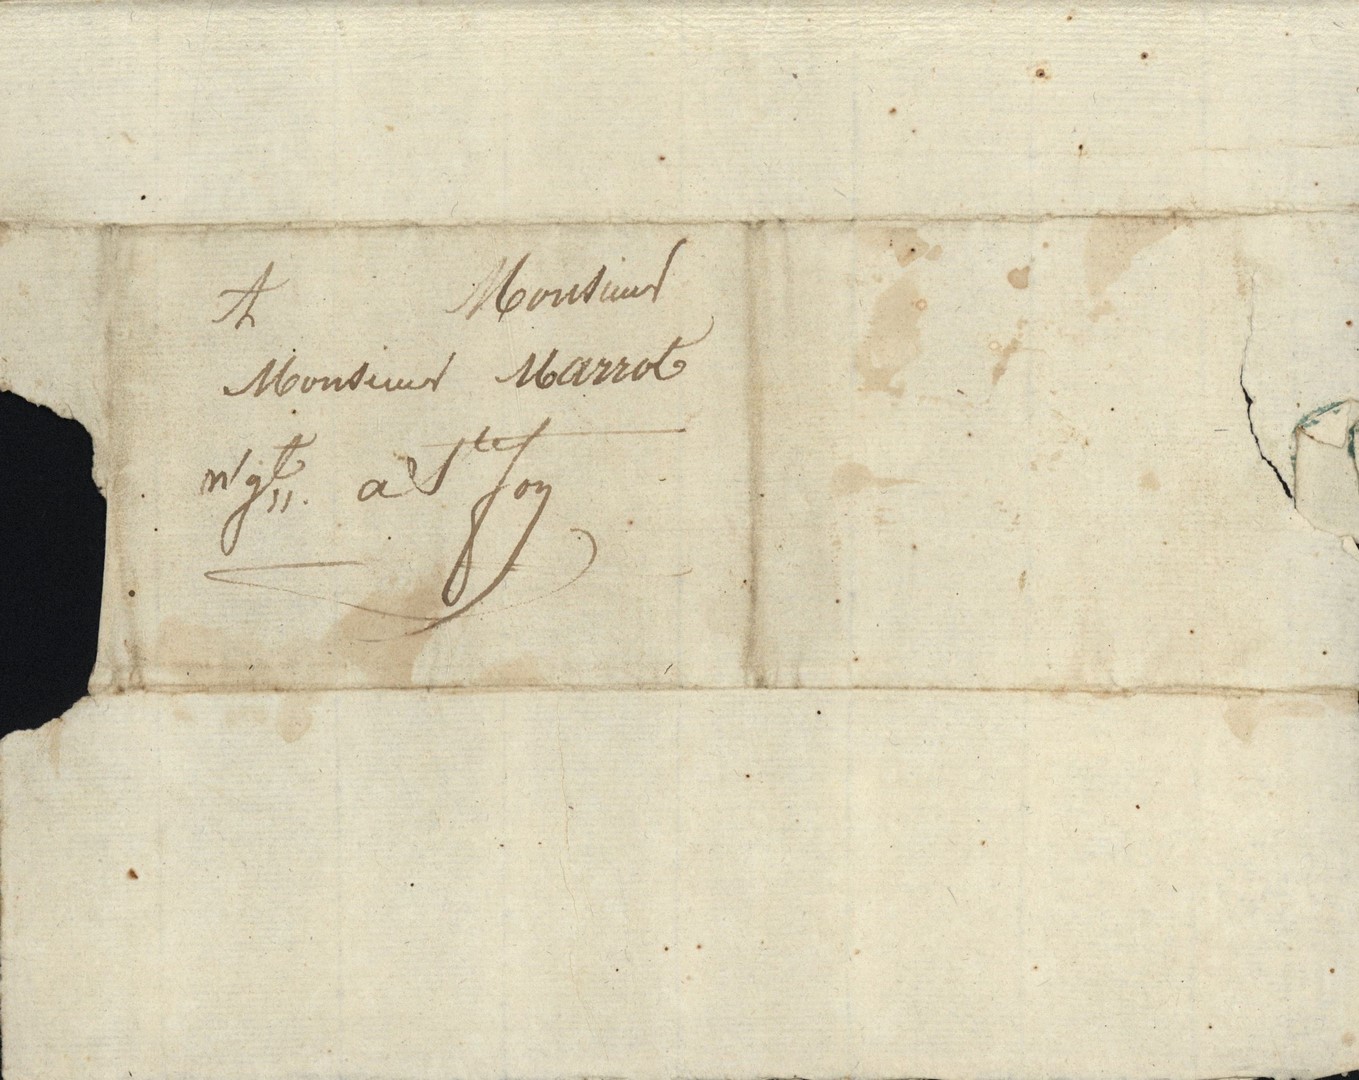 A Monsieur
Monsieur Marrot
n'gt. a Ste foy